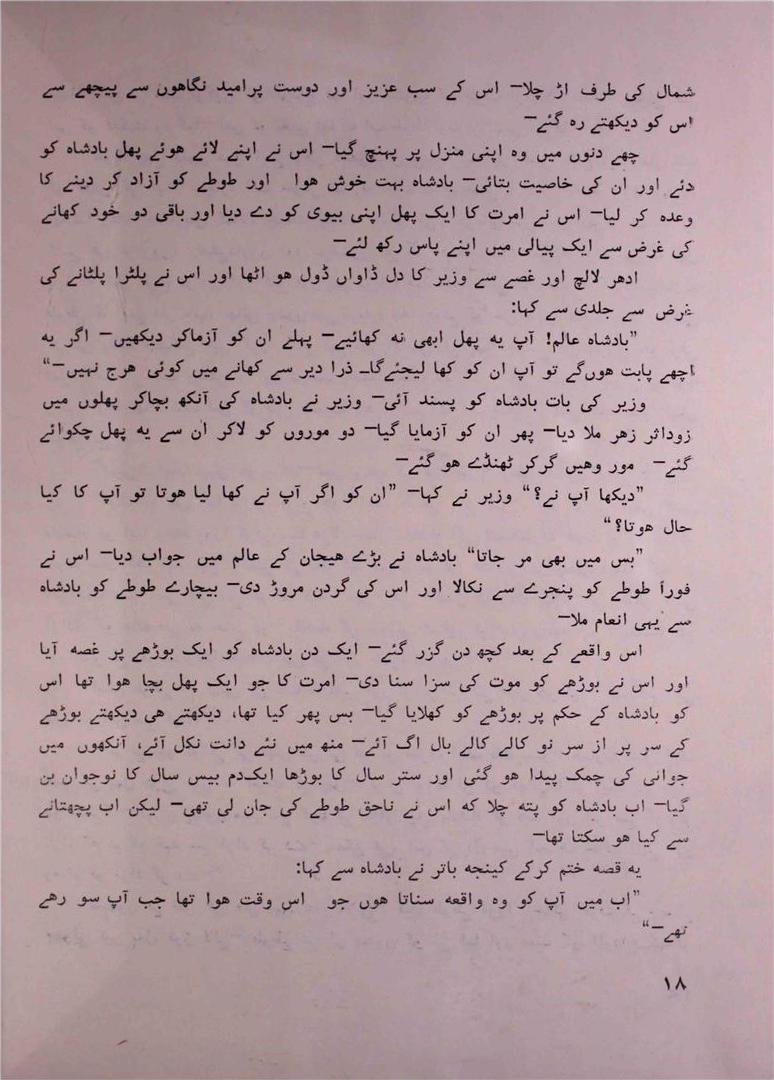 شمال کی طرف اڑ چلا— اس کے سب عزیز اور دوست پرامید نگاہوں سے پیچھے سے
اس کو دیکھتے رہ گئے—
چھے دنوں میں وہ اپنی منزل پر پہنچ گیا— اس نے اپنے لائے ہوئے پھل بادشاہ کو
دئے اور ان کی خاصیت بتائی— بادشاہ بہت خوش ہوا اور طوطے کو آزاد کر دینے کا
وعدہ کر لیا— اس نے امرت کا ایک پھل اپنی بیوی کو دے دیا اور باقی دو خود کھانے
کی غرض سے ایک پیالی میں اپنے پاس رکھ لئے—
ادھر لالچ اور غصے سے وزیر کا دل ڈاواں ڈول ہو اٹھا اور اس نے پلٹرا پلٹانے کی
غرض سے جلدی سے کہا:
”بادشاہ عالم! آپ یہ پھل ابھی نہ کھائیے— پہلے ان کو آزماکر دیکھیں— اگر یہ
اچھے پابت ہوں گے تو آپ ان کو کھا لیجئے گا— ذرا دیر سے کھانے میں کوئی ہرج نہیں—“
وزیر کی بات بادشاہ کو پسند آئی— وزیر نے بادشاہ کی آنکھ بچاکر پھلوں میں
زوداثر زہر ملا دیا— پھر ان کو آزمایا گیا— دو موروں کو لاکر ان سے یہ پھل چکوائے
گئے— مور وہیں گرکر ٹھنڈے ہو گئے—
”دیکھا آپ نے؟“ وزیر نے کہا— ”ان کو اگر آپ نے کھا لیا ہوتا تو آپ کا کیا
حال ہوتا؟“
”بس میں بھی مر جاتا“ بادشاہ نے بڑے ہیجان کے عالم میں جواب دیا— اس نے
فوراً طوطے کو پنجرے سے نکالا اور اس کی گردن مروڑ دی— بیچارے طوطے کو بادشاہ
سے یہی انعام ملا—
اس واقعے کے بعد کچھ دن گزر گئے— ایک دن بادشاہ کو ایک بوڑھے پر غصہ آیا
اور اس نے بوڑھے کو موت کی سزا سنا دی— امرت کا جو ایک پھل بچا ہوا تھا اس
کو بادشاہ کے حکم پر بوڑھے کو کھلایا گیا— بس پھر کیا تھا، دیکھتے ہی دیکھتے بوڑھے
کے سر پر از سر نو کالے کالے بال اگ آئے— منھ میں نئے دانت نکل آئے، آنکھوں میں
جوانی کی چمک پیدا ہو گئی اور ستر سال کا بوڑھا ایک دم بیس سال کا نوجوان بن
گیا— اب بادشاہ کو پتہ چلا کہ اس نے ناحق طوطے کی جان لی تھی— لیکن اب پچھتانے
سے کیا ہو سکتا تھا—
یہ قصہ ختم کرکے کینجہ باتر نے بادشاہ سے کہا:
”اب میں آپ کو وہ واقعہ سناتا ہوں جو اس وقت ہوا تھا جب آپ سو رہے
تھے—“
۱۸